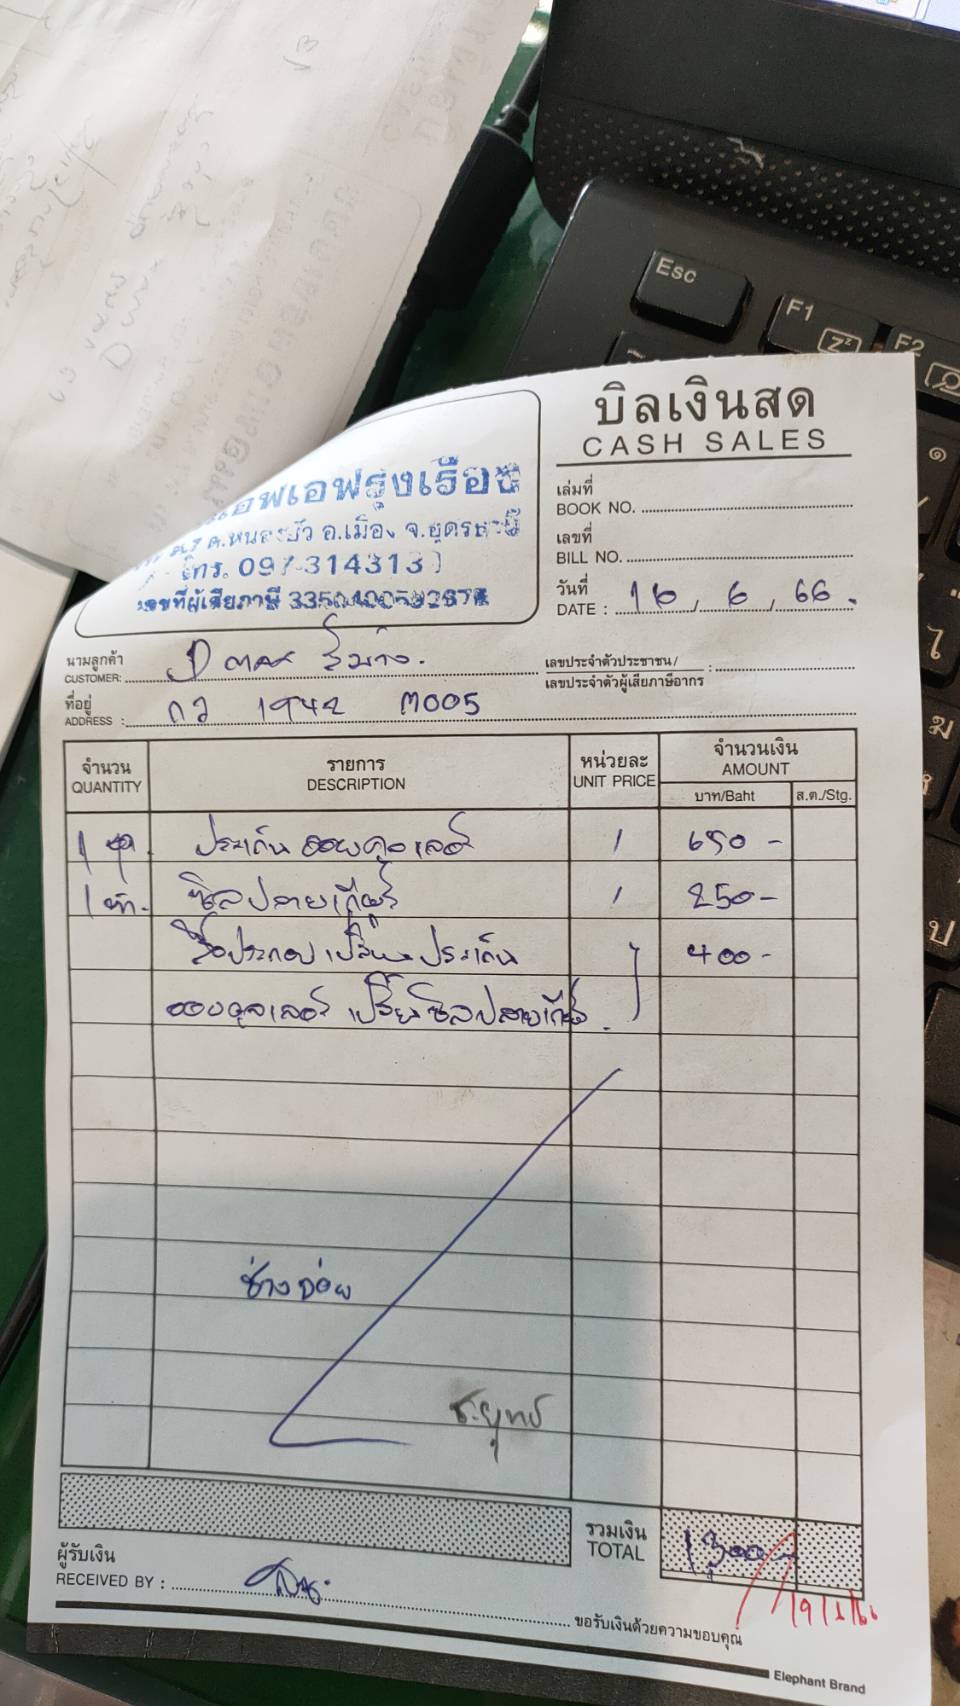 Esc
F1
F2
บิลเงินสด
CASH SALES
เอฟเอฟรุ่งเรือง
ต.หนองบัว อ.เมือง จ.อุดรธานี
โทร. 097-314313
เลขที่ผู้เสียภาษี
เล่มที่
BOOK NO.
เลขที่
BILL NO.
วันที่
DATE : 16 / 6 / 66.
นามลูกค้า
CUSTOMER:
เลขประจำตัวประชาชน/
เลขประจำตัวผู้เสียภาษีอากร
ที่อยู่
ADDRESS : กว 1942 M005
จำนวน รายการ หน่วยละ จำนวนเงิน
QUANTITY DESCRIPTION UNIT PRICE AMOUNT
บาท/Baht ส.ต./Stg.
1 ชุด ประเก็น ออยคูลเลอร์ 1 650 -
1 ตัว. ซีลปลายเกียร์ 1 250 -
รื้อประกอบ เปลี่ยนประเก็น 400 -
ออยคูลเลอร์ เปลี่ยนซีลปลายเกียร์
ช่างจ่อย
ช.ยุทธ
รวมเงิน
TOTAL 1,300 -
ผู้รับเงิน
RECEIVED BY :
ขอรับเงินด้วยความขอบคุณ
Elephant Brand